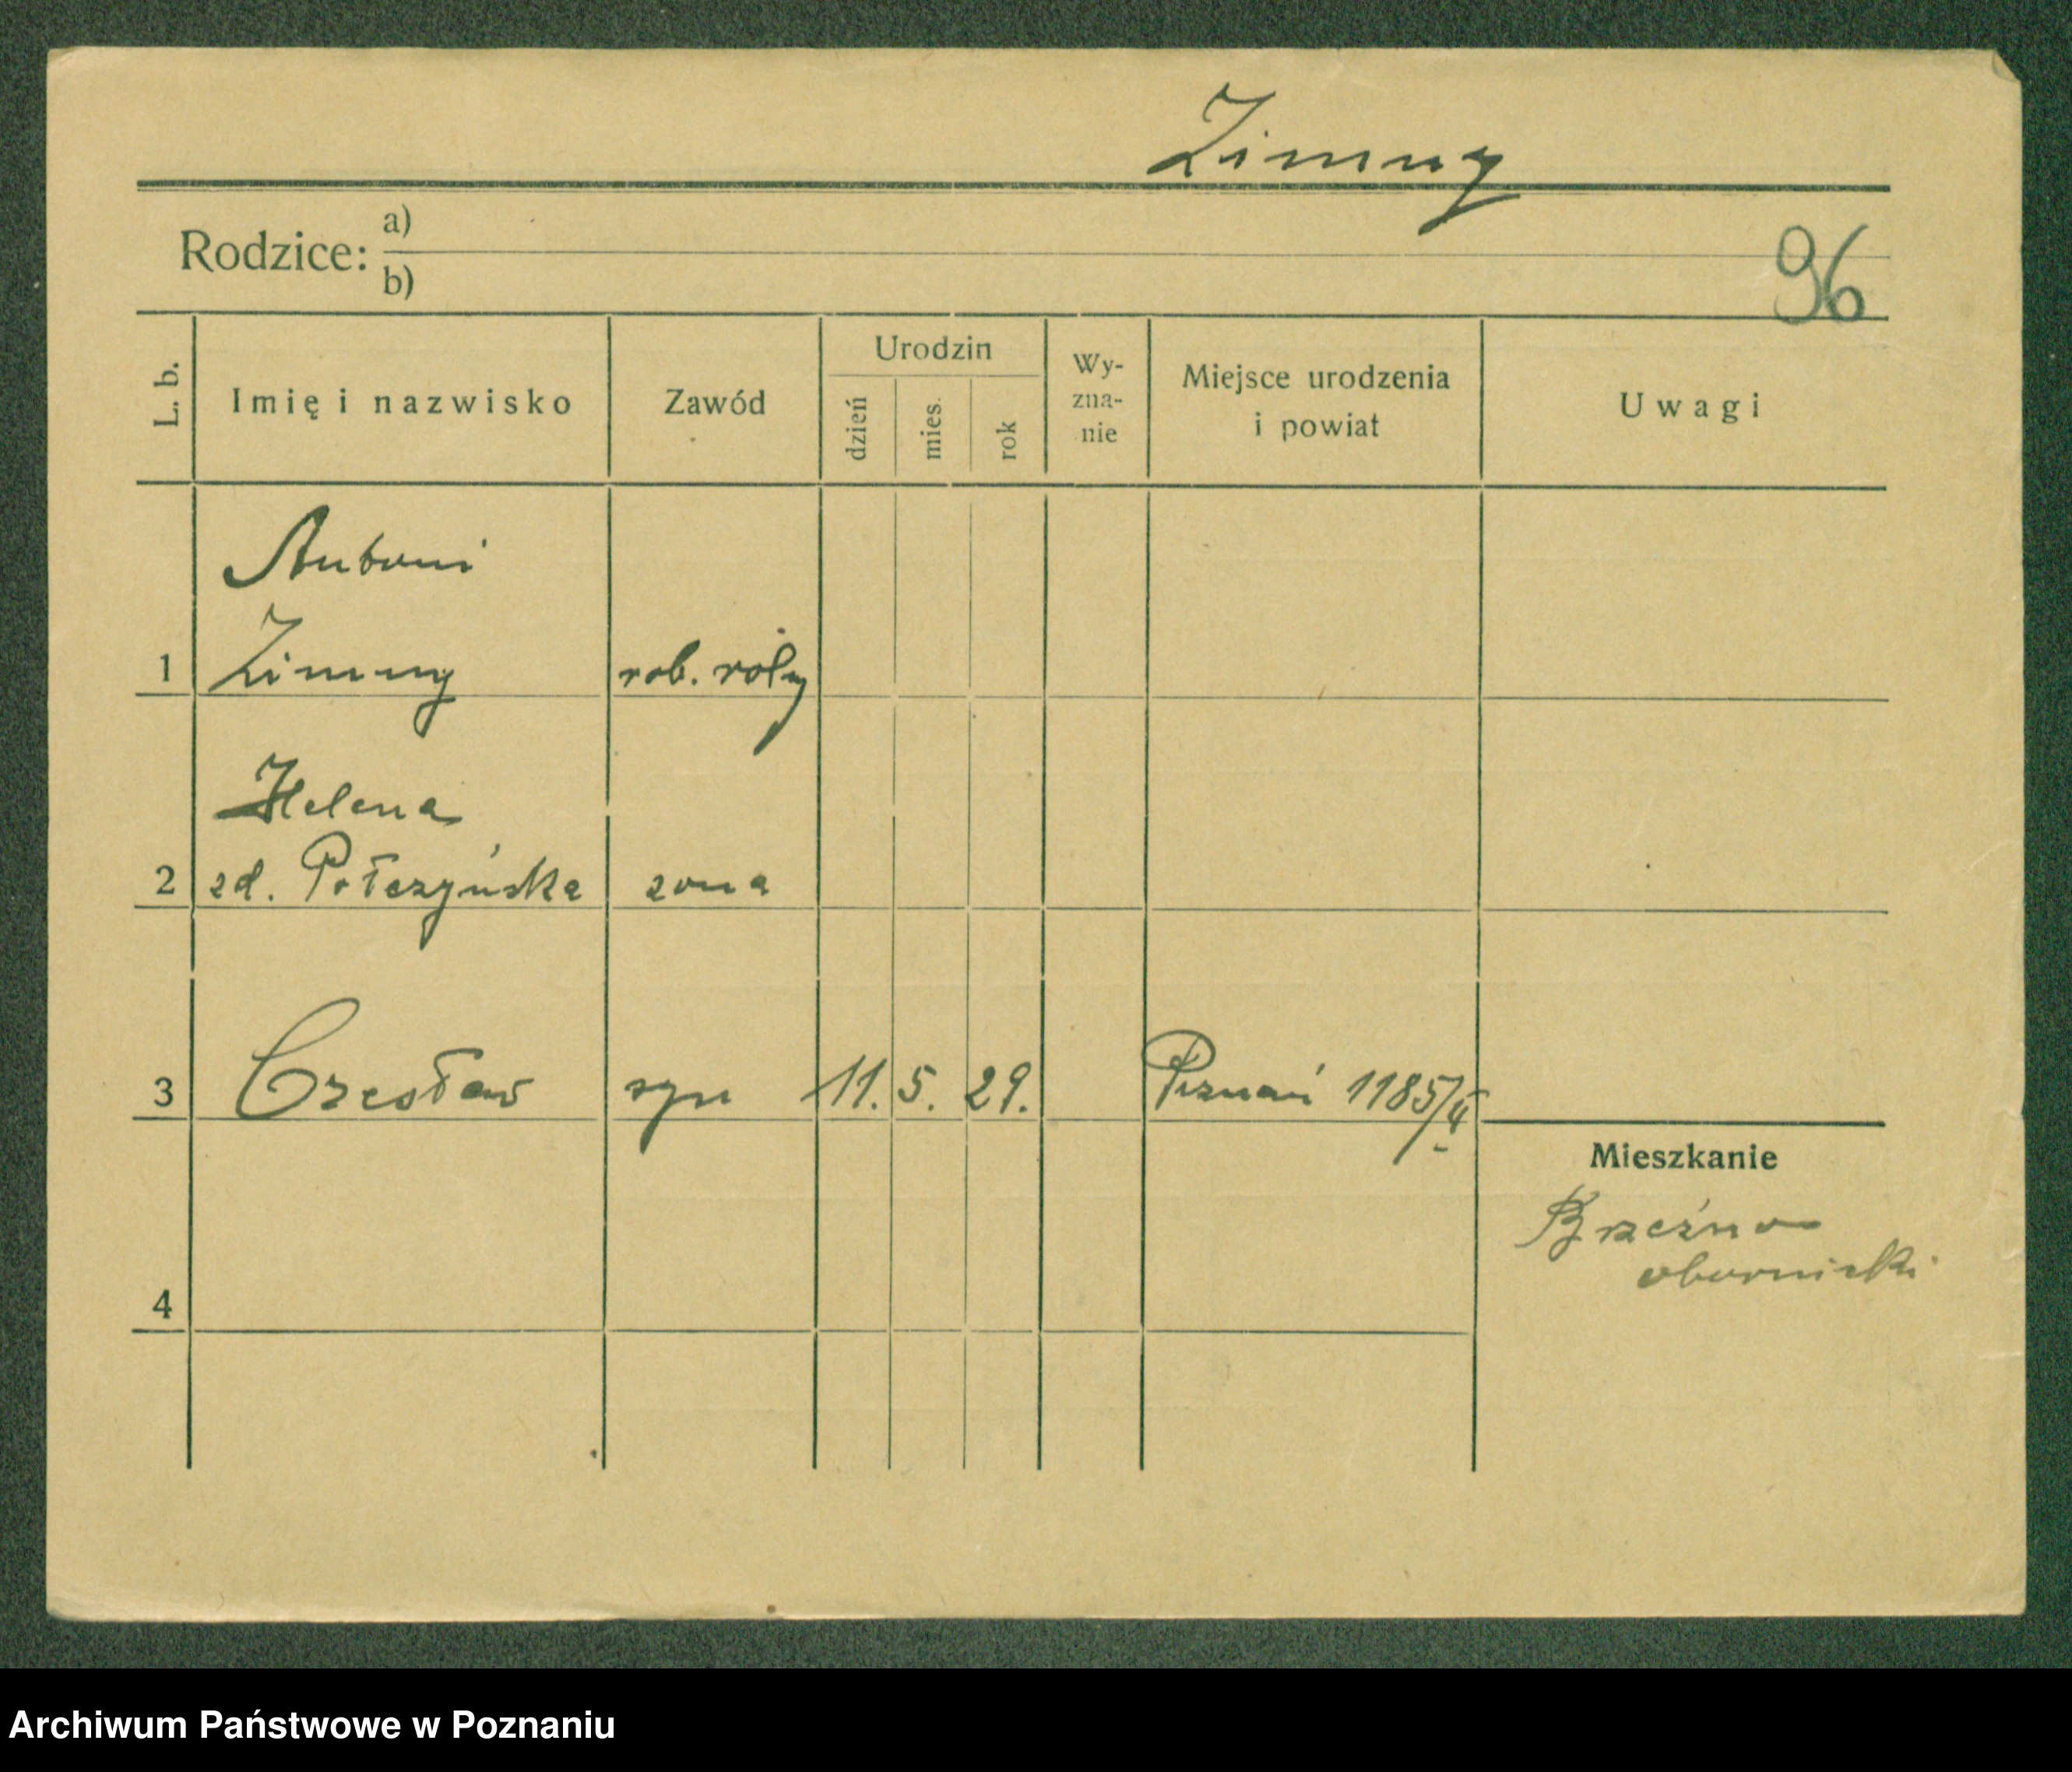 Zimny
Rodzice: a)
b)
96
L. b.
Imię i nazwisko
Zawód
Urodzin
dzień
mies.
rok
Wy-
zna-
nie
Miejsce urodzenia
i powiat
Uwagi
Antoni
1 Zimny rob. rolny
Helena
2 zd. Połczyńska zona
3 Czesław syn 11. 5. 29. Poznań 1185/II
Mieszkanie
Brzeźno
obornicki
4
Archiwum Państwowe w Poznaniu